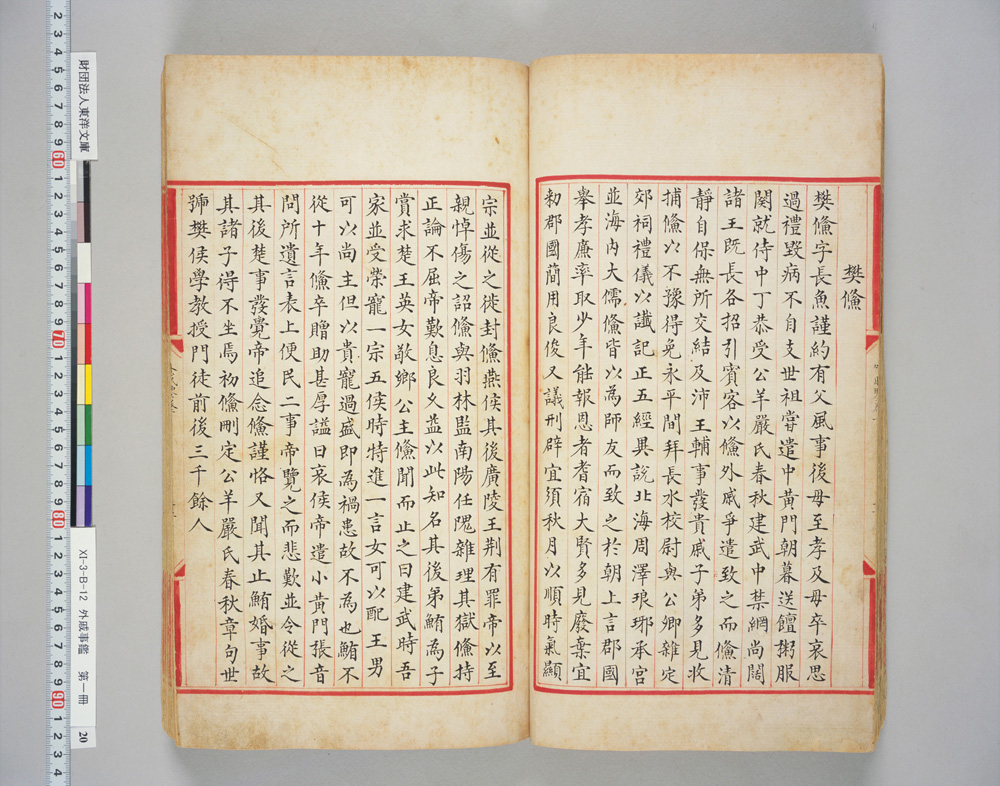 樊鯈
樊鯈字長魚謹約有父風事後母至孝及母卒哀思
過禮毀病不自支世祖嘗遣中黃門朝暮送饘粥服
闋就侍中丁恭受公羊嚴氏春秋建武中禁網尚闊
諸王既長各招引賓客以鯈外戚爭遣致之而鯈清
靜自保無所交結及沛王輔事發貴戚子弟多見收
捕鯈以不豫得免永平間拜長水校尉與公卿雜定
郊祠禮儀以讖記正五經異說北海周澤琅琊承宮
並海內大儒鯈皆以為師友而致之於朝上言郡國
舉孝廉率取少年能報恩者耆宿大賢多見廢棄宜
勑郡國蕳用良俊又議刑辟宜須秋月以順時氣顯
宗並從之徙封鯈燕侯其後廣陵王荆有罪帝以至
親悼傷之詔鯈與羽林監南陽任隗雜理其獄鯈持
正論不屈帝歎息良久益以此知名其後弟鮪為子
賞求楚王英女敬鄉公主鯈聞而止之曰建武時吾
家並受榮寵一宗五侯時特進一言女可以配王男
可以尚主但以貴寵過盛即為禍患故不為也鮪不
從十年鯈卒贈助甚厚謚曰哀侯帝遣小黃門張音
問所遺言表上便民二事帝覽之而悲歎並令從之
其後楚事發覺帝追念鯈謹恪又聞其止鮪婚事故
其諸子得不坐焉初鯈刪定公羊嚴氏春秋章句世
號樊侯學教授門徒前後三千餘人
財団法人東洋文庫
XI-3-B-12 外戚事鑑 第一冊 20